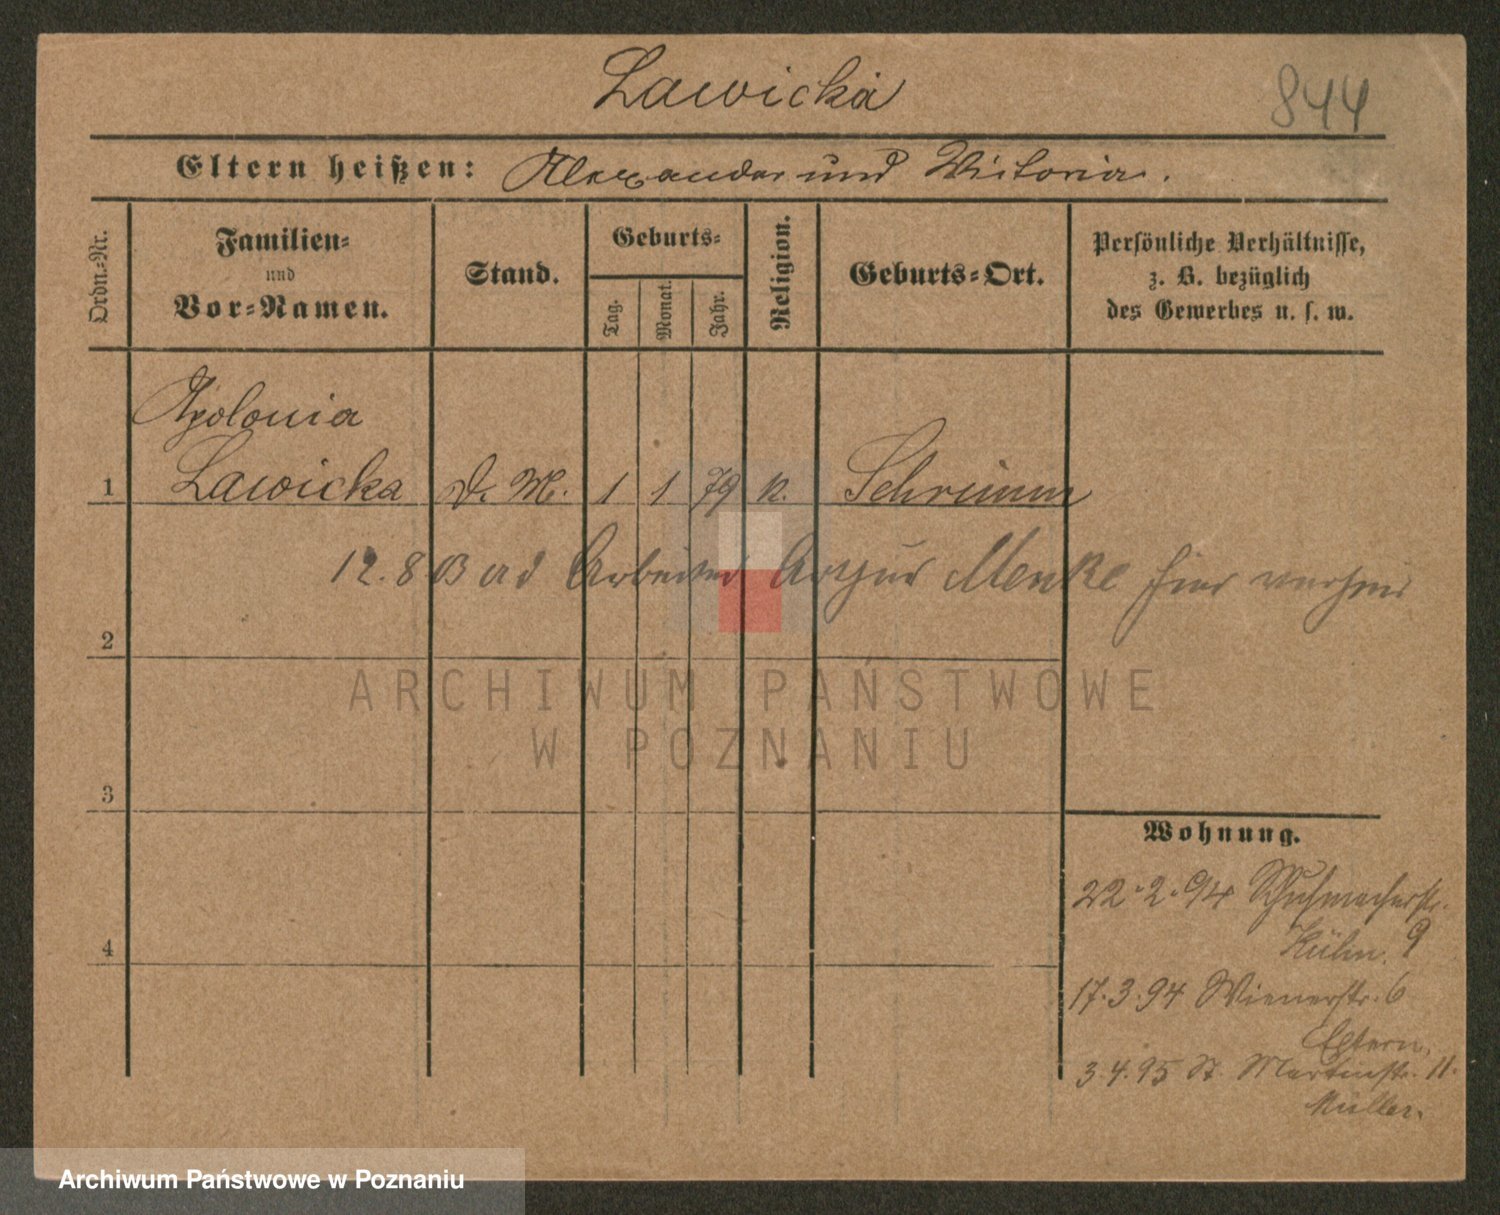 Lawicka
844
Eltern heißen: Alexander und Victoria.
Ordn.-Nr.
Familien-
und
Vor-Namen.
Stand.
Geburts-
Tag.
Monat.
Jahr.
Religion.
Geburts-Ort.
Persönliche Verhältnisse,
z. B. bezüglich
des Gewerbes u. s. w.
Apolonia
1 Lawicka D. M. 1 1 79 k. Schrimm
12.8 Arbeiter Menke hier
2
ARCHIWUM PAŃSTWOWE
W POZNANIU
3
Wohnung.
22.2.94 Schuhmacherstr.
Kühn. 9
4
17.3.94 Wienerstr. 6
Eltern.
3.4.95 St. Martinstr. 11.
Müller.
Archiwum Państwowe w Poznaniu